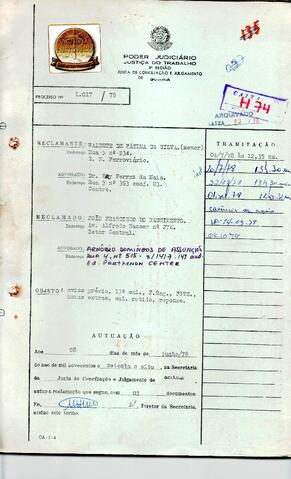 135
PODER JUDICIÁRIO
JUSTIÇA DO TRABALHO
3ª REGIÃO
JUNTA DE CONCILIAÇÃO E JULGAMENTO
DE GOIÂNIA
PROCESSO Nº 1.017 / 78
CAIXA
H 74
ARQUIVADO
CAIXA
TRAMITAÇÃO
04/7/78 às 12,35 hs.
RECLAMANTE: VALDETE DE FÁTIMA DA SILVA.(menor)
Endereço Rua 5 nº 234.
S. N. Ferroviário.
ADVOGADO: Dr. Ferraz da Maia.
Endereço Rua 3 nº 363 conj. 03.
Centro.
RECLAMADO: JOÃO FRANCISCO DO NASCIMENTO.
Endereço Av. Alfredo Nasser nº 276.
Setor Central.
ADVOGADO: ARNÓBIO DOMINGOS DE ASSUNÇÃO
Endereço RUA 4, Nº 515 - S/1417, 14º and.
Ed. PARTHENON CENTER
OBJETO: aviso prévio, 13º sal., F.Reg., FGTS,
horas extras, sal. retido, repouso.
AUTUAÇÃO
Aos 08 dias do mês de junho/78
do ano de mil novecentos e setenta e oito, na Secretaria
da Junta de Conciliação e Julgamento de GOIÂNIA
autuo a reclamação que segue, com 03 documentos.
Eu, Diretor da Secretaria,
assino este termo.